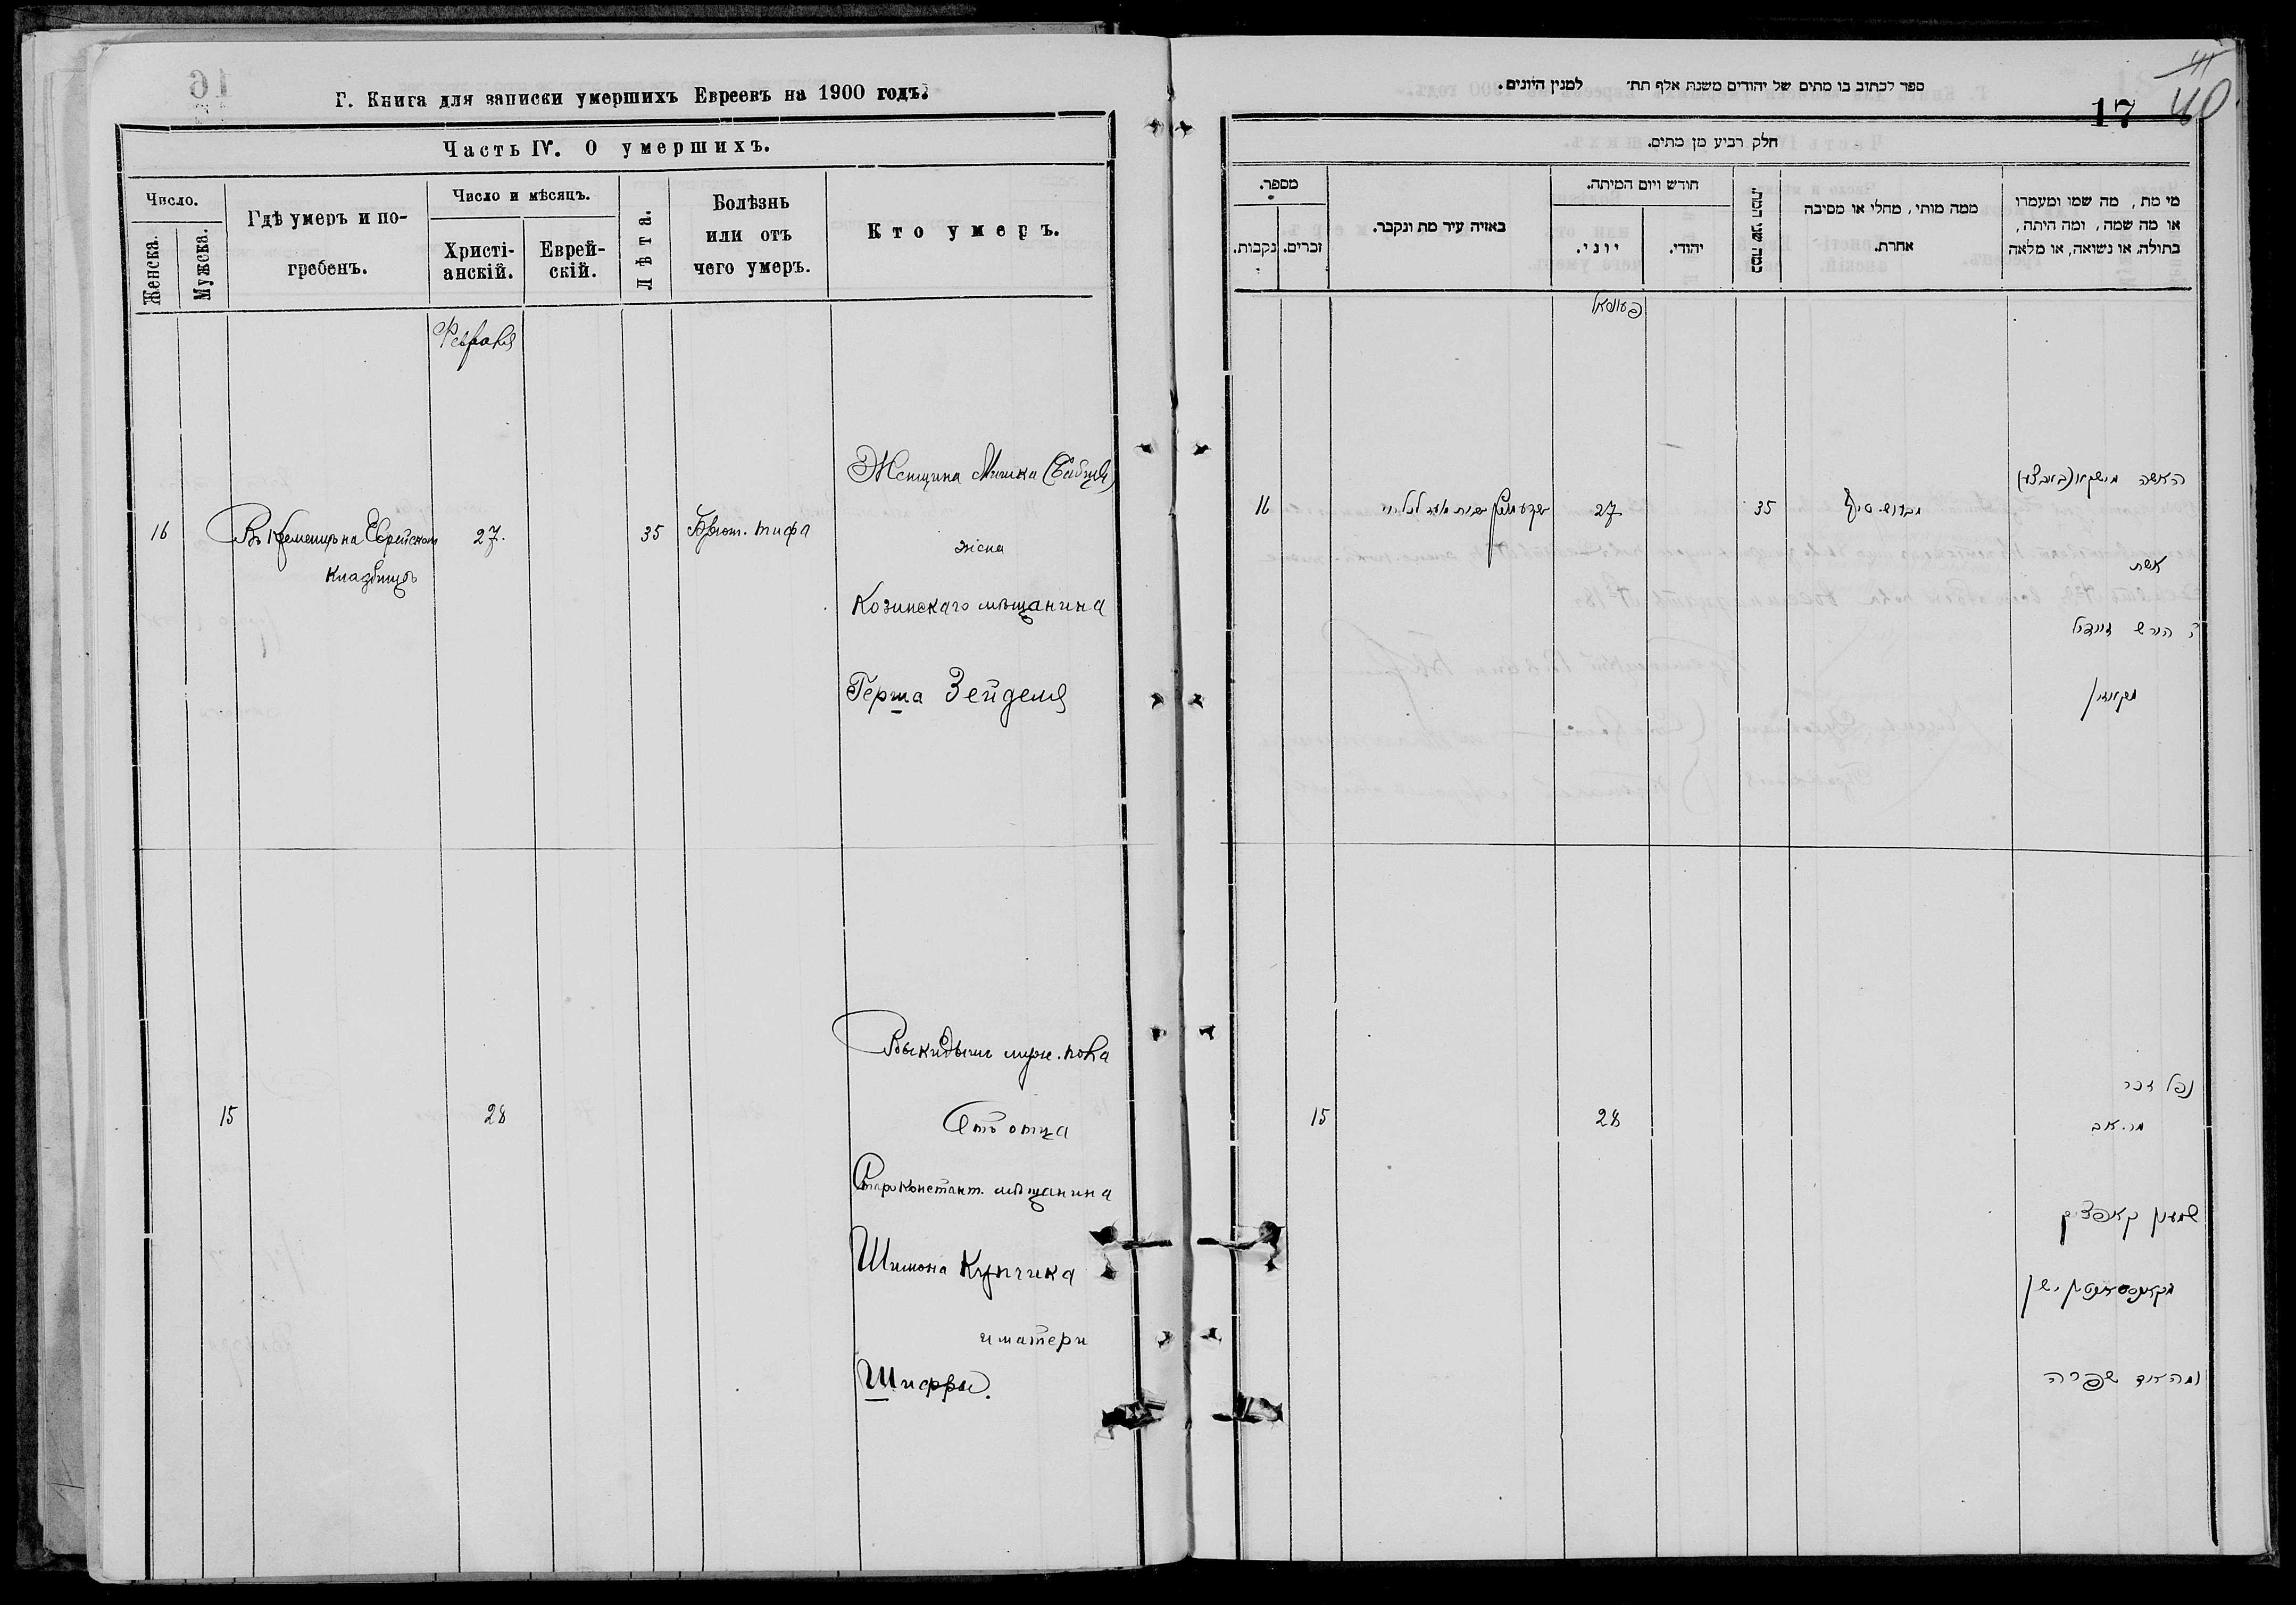 Г. Книга для записки умершихъ Евреевъ на 1900 годъ.
Часть IV. О умершихъ.
Число.
Женска.
Мужска.
Гдѣ умеръ и по-
гребенъ.
Число и мѣсяцъ.
Христі-
анскій.
Еврей-
скій.
Лѣта.
Болѣзнь
или отъ
чего умеръ.
Кто умеръ.
Февраля
Женщина
16
Въ Кременцѣ на Еврейскомъ
кладбищѣ
27.
35
Брюш. тифа
жена
Козинскаго мѣщанина
Герша Зейделя
Выкидышъ муж. пола
15
28
Отъ отца
Староконстант. мѣщанина
Шимона Купчика
и матери
Шифры.
ספר לכתוב בו מתים של יהודים משנת אלף תת׳ למנין היונים.
17
40
חלק רביע מן מתים.
מספר.
נקבות.
זכרים.
באיזה עיר מת ונקבר.
חודש ויום המיתה.
יוני.
יהודי.
כמה שני המת.
ממה מותי, מחלי או מסיבה
אחרת.
מי מת, מה שמו ומעמדו
או מה שמה, ומה היתה,
בתולה או נשואה, או מלאה
האשה
16
27
35
אשת
הירש זיידיל
נפל זכר
15
28
מהאב
שמעון
ומהאם שפרה